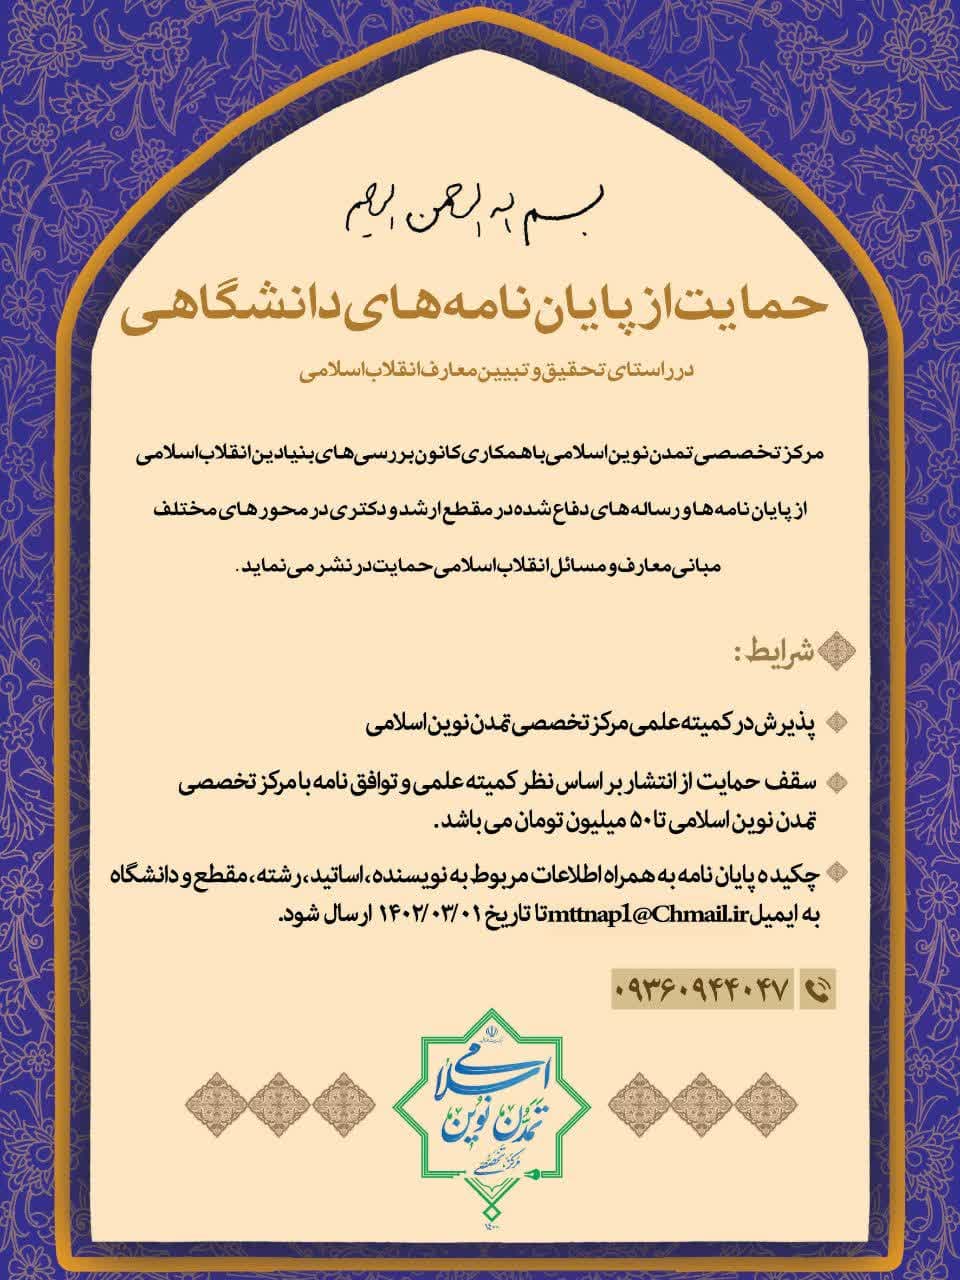 بسم الله الرحمن الرحیم
حمایت از پایان نامه های دانشگاهی
در راستای تحقیق و تبیین معارف انقلاب اسلامی
مرکز تخصصی تمدن نوین اسلامی با همکاری کانون بررسی های بنیادین انقلاب اسلامی
از پایان نامه ها و رساله های دفاع شده در مقطع ارشد و دکتری در محور های مختلف
مبانی معارف و مسائل انقلاب اسلامی حمایت در نشر می نماید .
شرایط :
پذیرش در کمیته علمی مرکز تخصصی تمدن نوین اسلامی
سقف حمایت از انتشار بر اساس نظر کمیته علمی و توافق نامه با مرکز تخصصی
تمدن نوین اسلامی تا ۵۰ میلیون تومان می باشد .
چکیده پایان نامه به همراه اطلاعات مربوط به نویسنده، اساتید، رشته، مقطع و دانشگاه
به ایمیل mttnap1@Chmail.ir تا تاریخ ۱۴۰۲/۰۳/۰۱ ارسال شود.
۰۹۳۶۰۹۴۴۰۴۷
اسلامی
تمدن نوین
مرکز تخصصی
۱۴۰۰